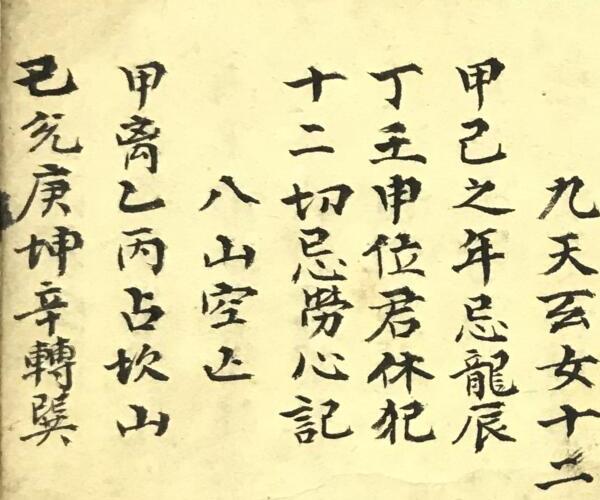 九天玄女十二
甲己之年忌龍辰
丁壬申位君休犯
十二切忌勞心記
八山空亡
甲离乙丙占坎山
己兊庚坤辛轉巽